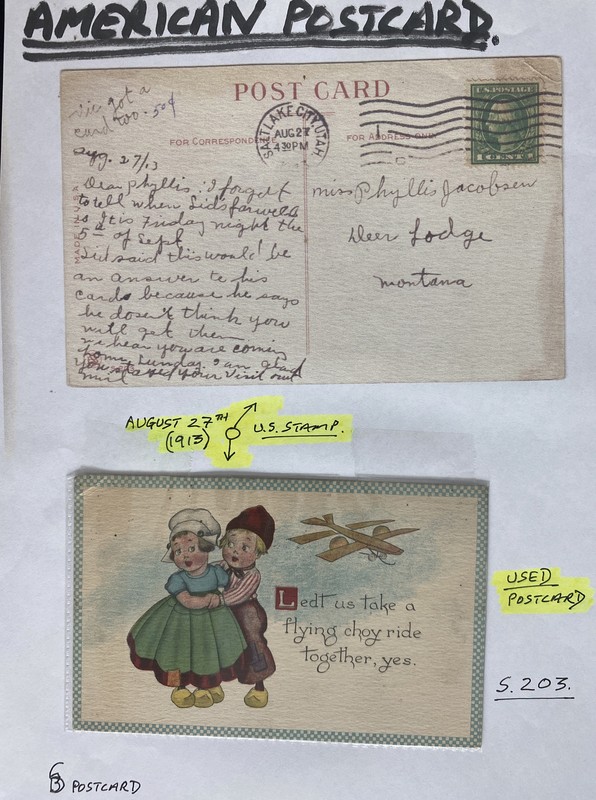 AMERICAN POSTCARD.
Vic got a
card too. 50¢
POST CARD
FOR CORRESPONDENCE
FOR ADDRESS ONLY
SALT LAKE CITY, UTAH
AUG 27
4 30 PM
U.S. POSTAGE
1 CENT 1
MADE IN U.S.A.
27/13
Dear Phyllis. I forgot
to tell when Sids farwell
is It is Friday night the
5th of Sept
Sid said this would be
an answer to his
cards because he says
he doesn't think you
will get them.
we hear you are coming
home Sunday I am glad
you your visit
Miss Phyllis Jacobsen
Deer Lodge
Montana
AUGUST 27TH
(1913)
U.S. STAMP.
Ledt us take a
flying choy ride
together, yes.
USED
POSTCARD
S. 203.
POSTCARD